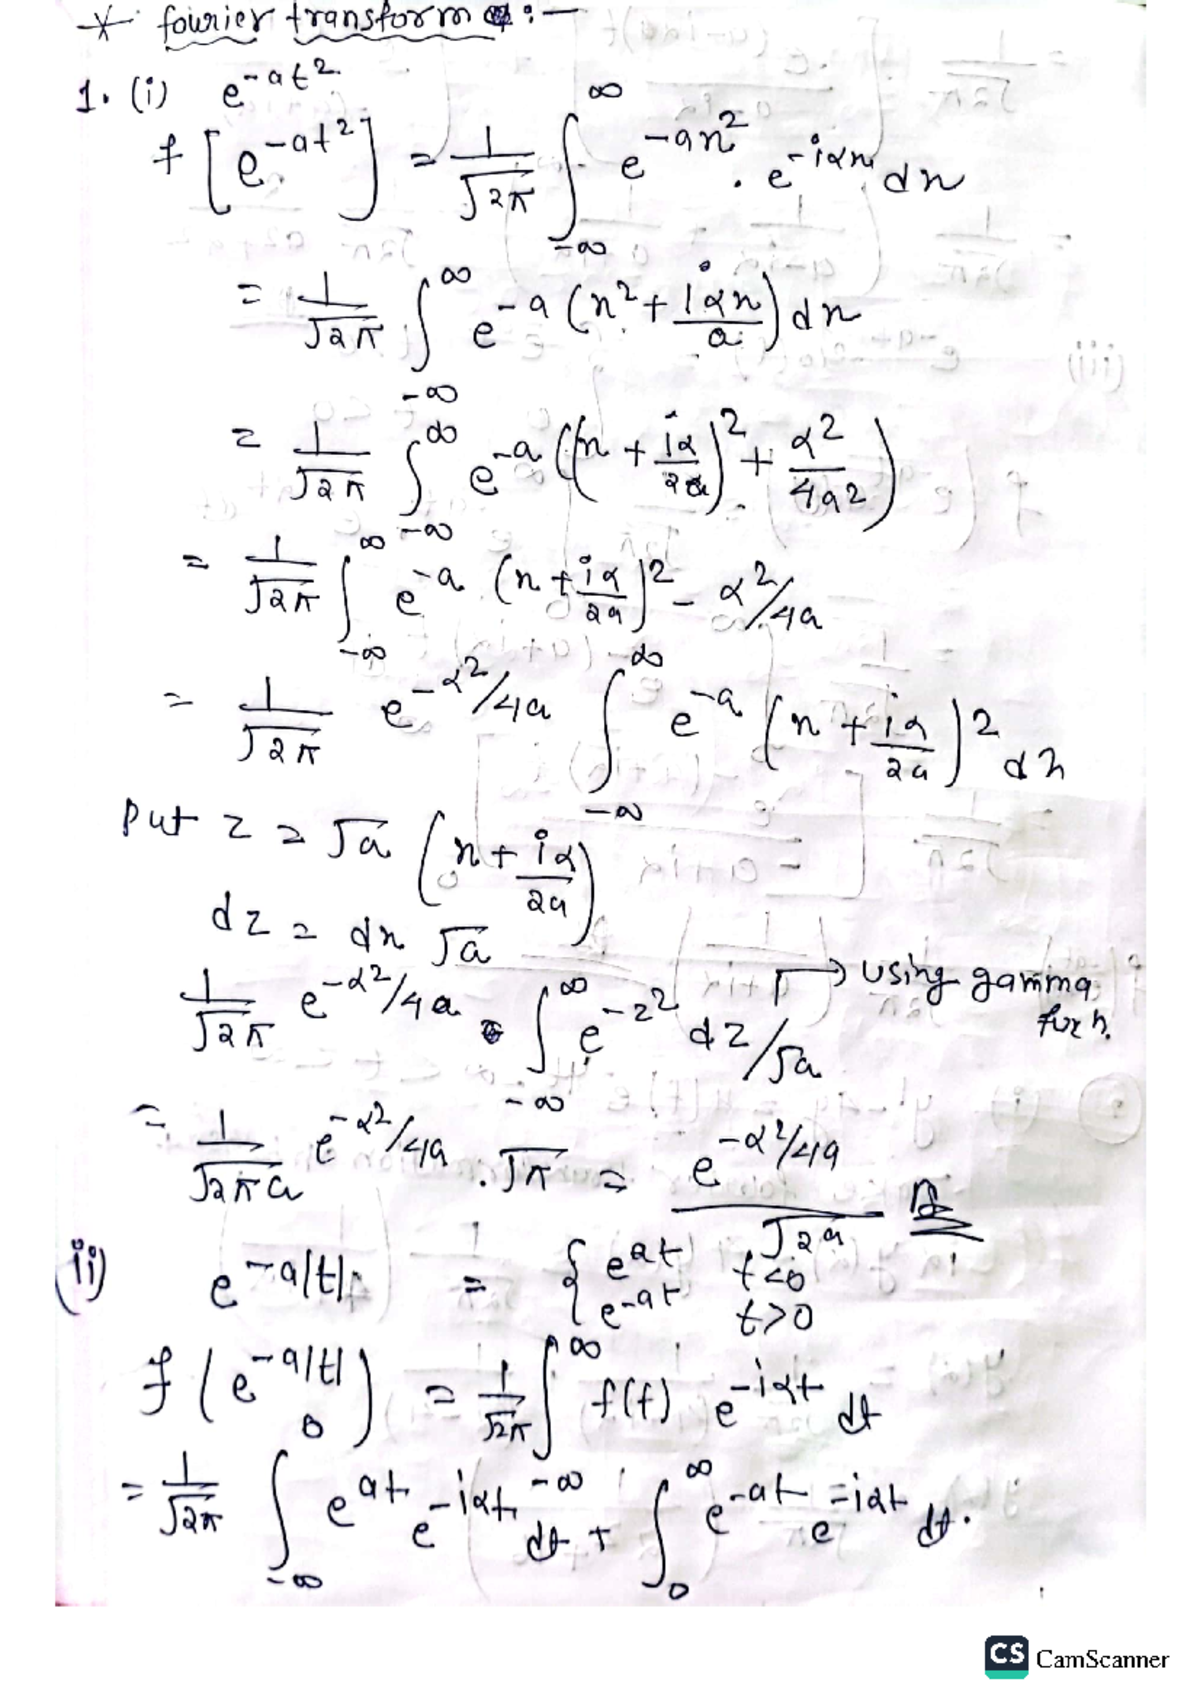 * fourier transform :-
1. (i) e^{-at^2}
f[e^{-at^2}] = 1/√2π ∫_{-∞}^{∞} e^{-an^2} . e^{-iαn} dn
= 1/√2π ∫_{-∞}^{∞} e^{-a(n^2 + iαn/a)} dn
= 1/√2π ∫_{-∞}^{∞} e^{-a((n + iα/2a)^2 + α^2/4a^2)}
= 1/√2π ∫_{-∞}^{∞} e^{-a(n + iα/2a)^2 - α^2/4a}
= 1/√2π e^{-α^2/4a} ∫_{-∞}^{∞} e^{-a(n + iα/2a)^2} dn
Put z = √a (n + iα/2a)
dz = dn √a
1/√2π e^{-α^2/4a} . ∫_{-∞}^{∞} e^{-z^2} dz/√a → using gamma fuxn.
= 1/√2πa e^{-α^2/4a} . √π = e^{-α^2/4a}/√2a
(ii) e^{-a|t|} = { e^{at} t<0
e^{-at} t>0
f(e^{-a|t|}) = 1/√2π ∫_{-∞}^{∞} f(t) e^{-iαt} dt
= 1/√2π ∫_{-∞}^{0} e^{at} e^{-iαt} dt + ∫_{0}^{∞} e^{-at} e^{-iαt} dt.
CS CamScanner